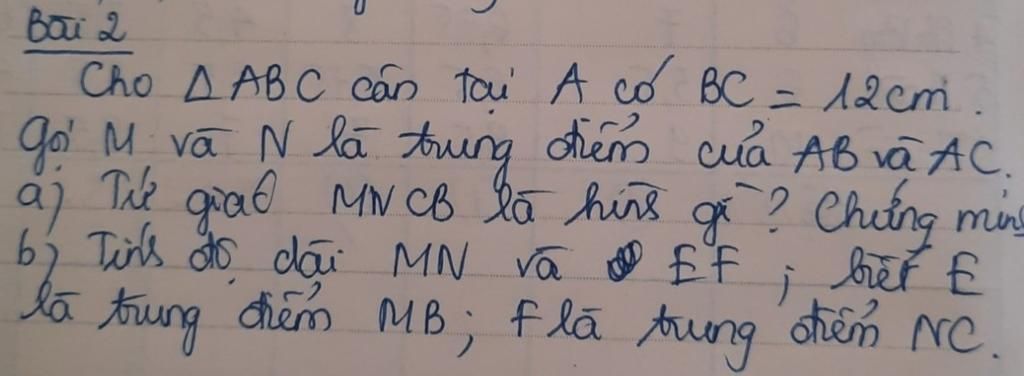 Bài 2
Cho Δ ABC cân tại A có BC = 12cm.
Gọi M và N là trung điểm của AB và AC.
a) Tứ giác MNCB là hình gì? Chứng minh
b) Tính độ dài MN và EF; biết E
là trung điểm MB; F là trung điểm NC.